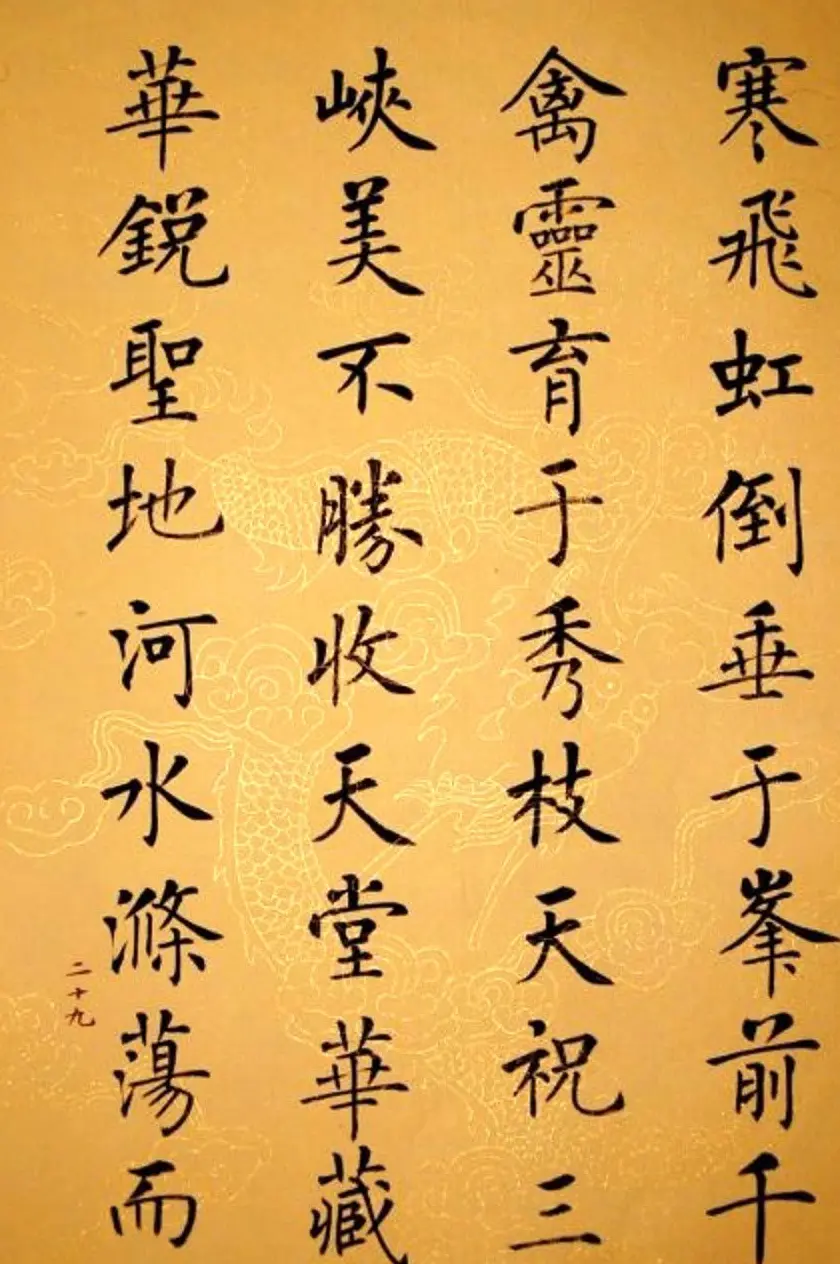 寒飛虹倒垂于峯前千
禽靈育于秀枝天祝三
峽美不勝收天堂華藏
華銳聖地河水滌蕩而
二十九